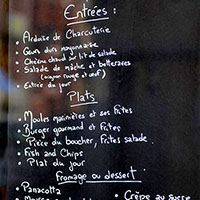 Entrées :
• Ardoise de Charcuterie
• Oeufs durs mayonnaise
• Chèvre chaud sur lit de salade
• Salade de mâche et betteraves
(oignon rouge et œuf)
• Entrée du jour
Plats
• Moules marinières et ses frites
• Burger gourmand et Frites
• Pièce du boucher, Frites salade
• Fish and Chips
• Plat du jour
Fromage ou dessert
• Panacotta
• Crêpe au sucre